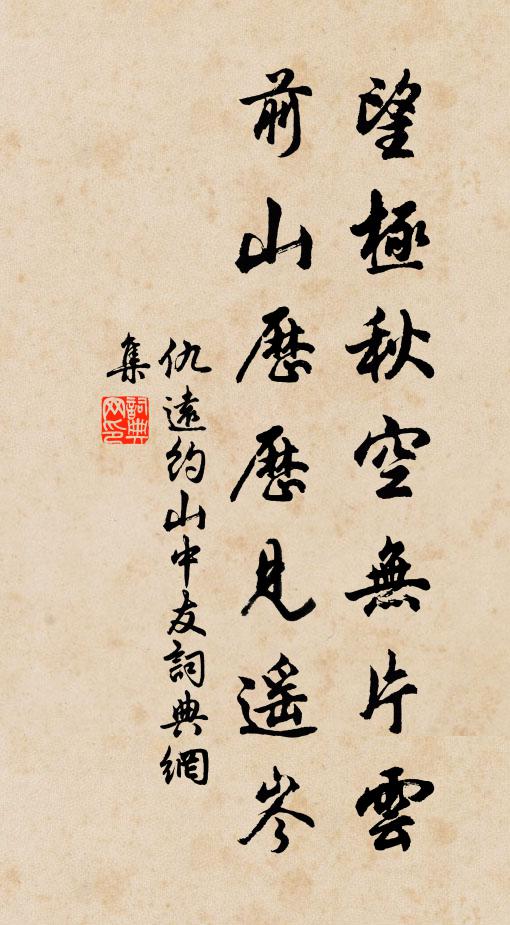 望極秋空無片雲
前山歷歷見遥岑
仇遠約山中友詞典網
集
詞典
网印